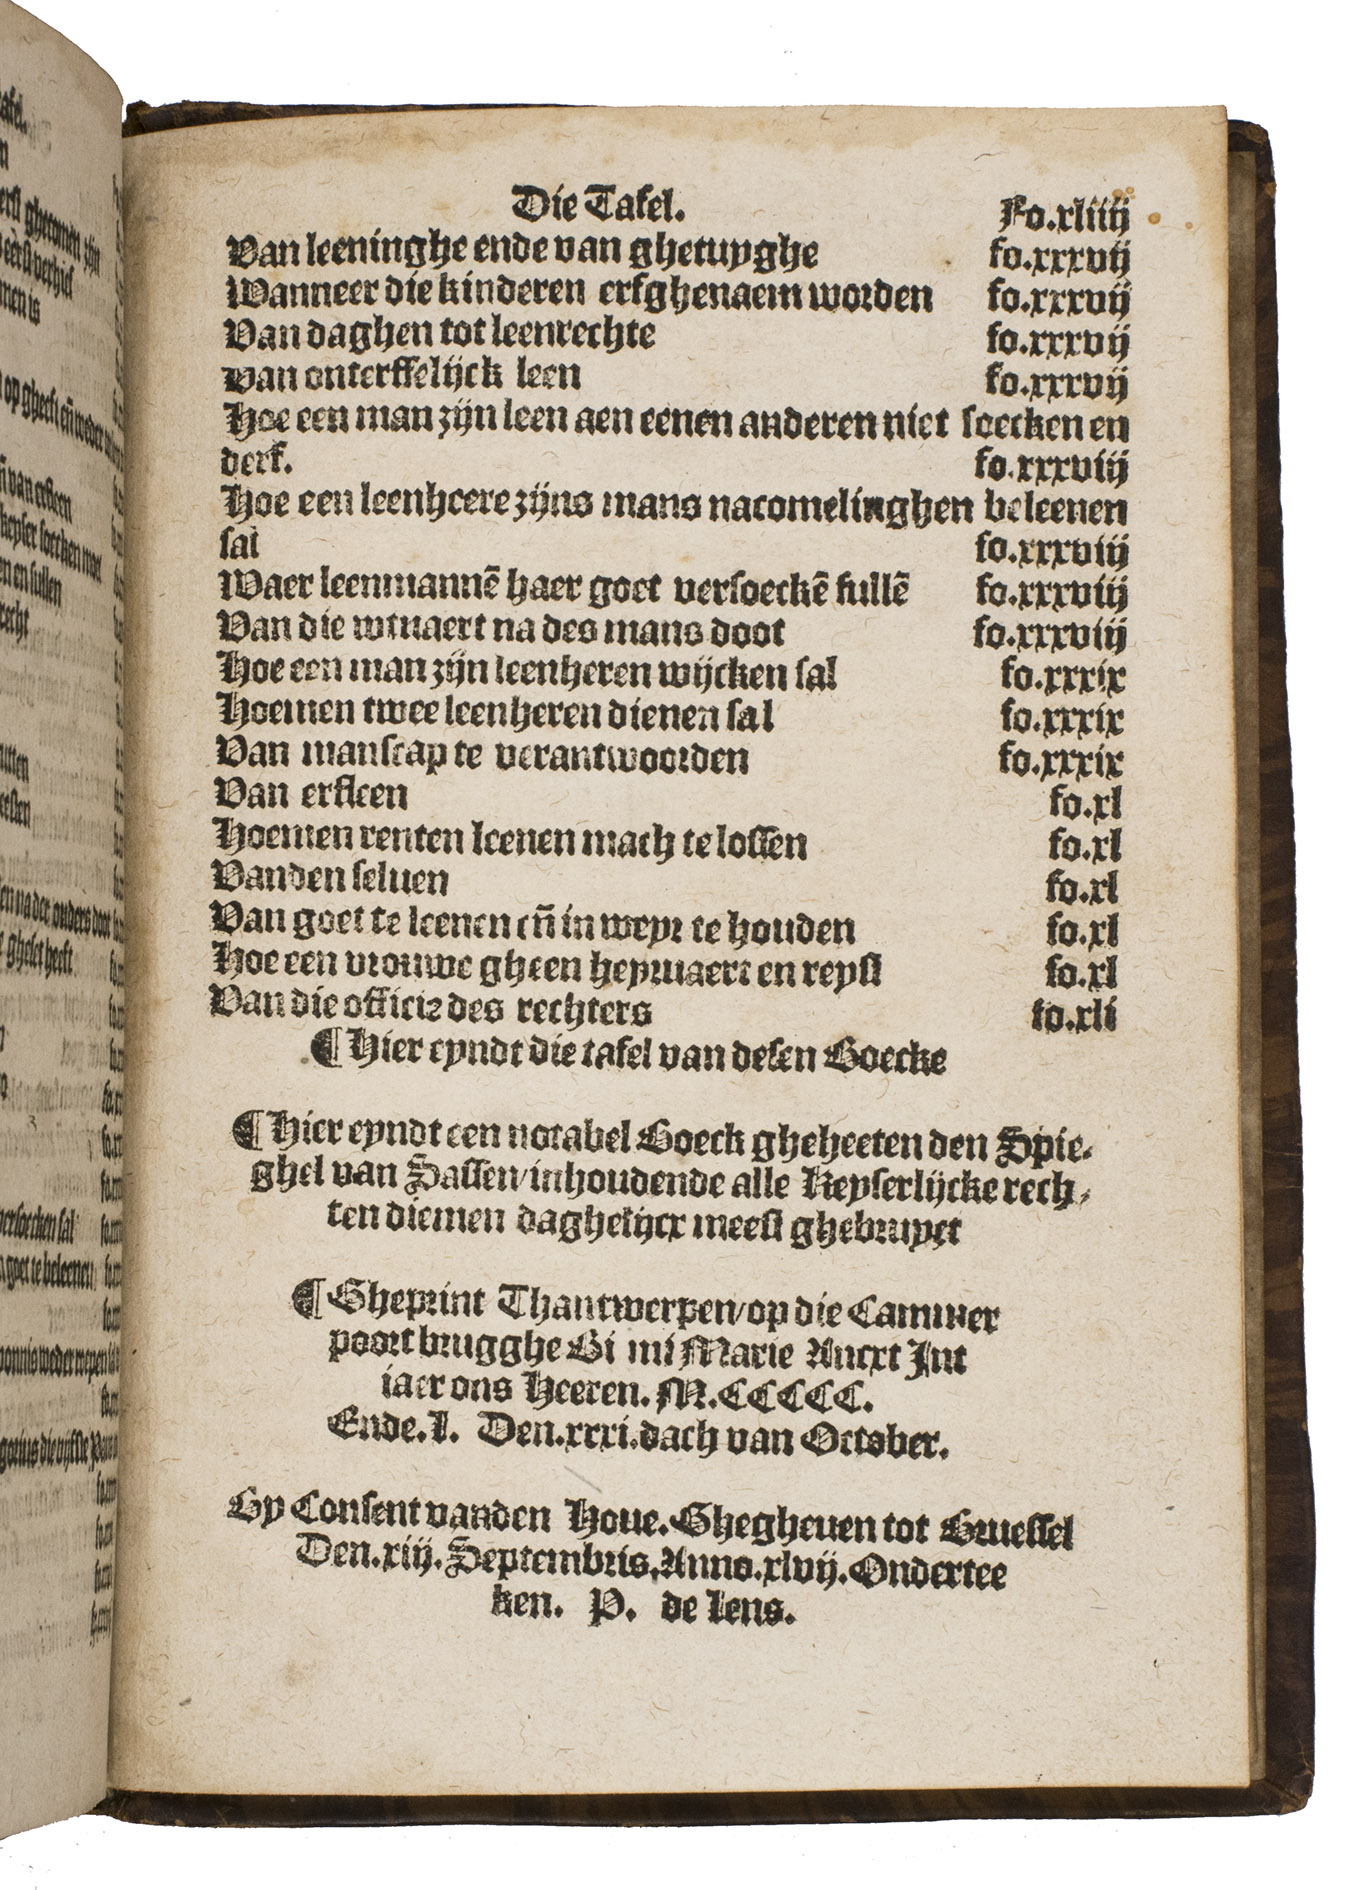 Die Tafel. Fo.xliiij
Van leeninghe ende van ghetuyghe fo.xxxvij
Wanneer die kinderen erfghenaem worden fo.xxxvij
Van daghen tot leenrechte fo.xxxvij
Van onterffelijck leen fo.xxxvij
Hoe een man zijn leen aen eenen anderen niet soecken en
derf. fo.xxxviij
Hoe een leenheere zijns mans nacomelinghen beleenen
sal fo.xxxviij
Waer leenmannē haer goet versoeckē sullē fo.xxxviij
Van die wtuaert na des mans doot fo.xxxviij
Hoe een man zijn leenheren wijcken sal fo.xxxix
Hoemen twee leenheren dienen sal fo.xxxix
Van manscap te verantwoorden fo.xxxix
Van erfleen fo.xl
Hoemen renten leenen mach te lossen fo.xl
Vanden seluen fo.xl
Van goet te leenen eñ in weyr te houden fo.xl
Hoe een vrouwe gheen heyruaert en reyst fo.xl
Van die officie des rechters fo.xli
¶ Hier eyndt die tafel van desen Boecke
¶ Hier eyndt een notabel Boeck gheheeten den Spie-
ghel van Sassen/inhoudende alle Keyserlijcke rech-
ten diemen daghelijcx meest ghebruyct
¶ Gheprint Thantwerpen/op die Cammer
poort brugghe Bi mi Marie Ancxt Int
iaer ons Heeren. M.CCCCC.
Ende.L. Den.xxxi.dach van October.
By Consent vanden Houe. Ghegheuen tot Bruessel
Den.xiij.Septembris.Anno.xlvij.Ondertee
ken. P. de Lens.